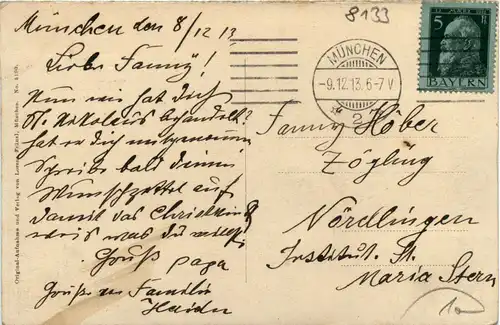 München den 8/12 13
8133
Liebe Fanny!
Nun wie hat Dich
St. Nikolaus behandelt?
hat er Dich
Schreibe bald deinen
Wunschzettel auf
damit das Christkind
weis was du willst!
Gruß papa
Grüße an Familie
Haidn
MÜNCHEN
-9.12.13.6-7 V
2
5
BAYERN
Fanny Höber
Zögling
Nördlingen
Institut. St.
Maria Stern
10
Original-Aufnahme und Verlag von Lorenz Fränzl, München. No.